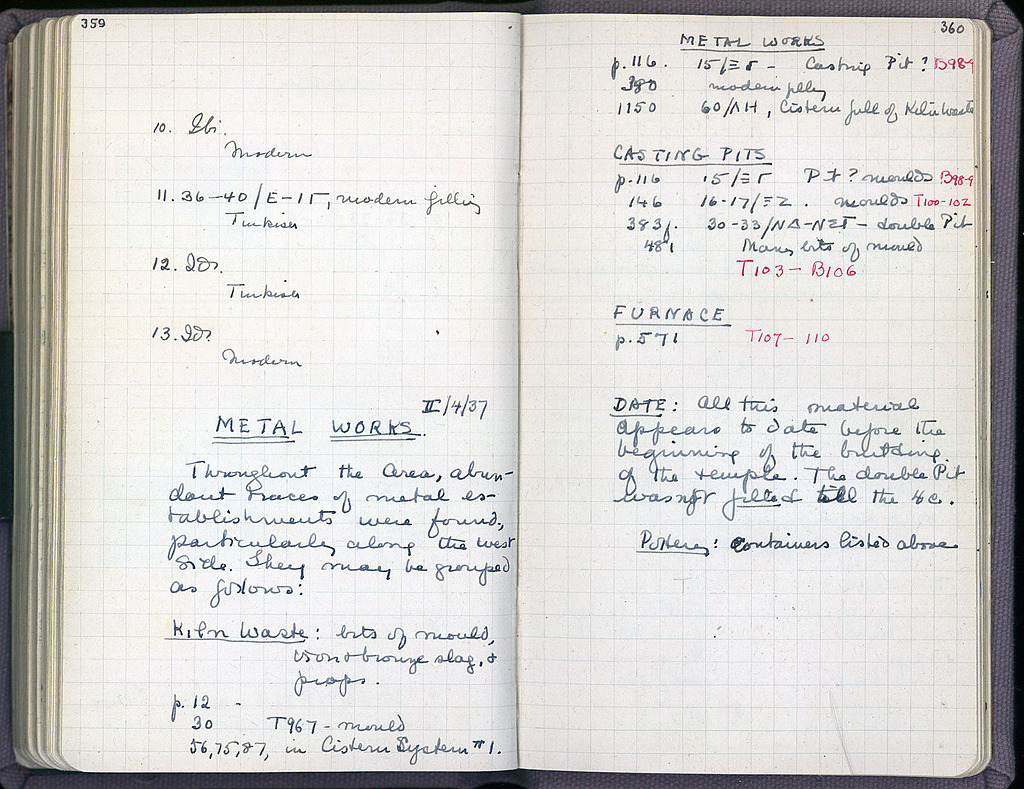 359
10. Ibi.
Modern
11. 36-40/E-IΓ, modern filling
Turkish
12. Id?.
Turkish
13. Id?
Modern
II/4/37
METAL WORKS.
Throughout the area, abun-
dant traces of metal es-
tablishments were found,
particularly along the west
side. They may be grouped
as follows:
Kiln Waste: bits of mould,
iron & bronze slag, &
props.
p. 12 -
30 T967 - mould
56, 75, 87, in Cistern System #1.
360
METAL WORKS
p. 116. 15/ΞΓ - Casting Pit? B98-9
380 modern
1150 60/ΛH, Cistern full of Kiln Waste
CASTING PITS
p. 116 15/ΞΓ Pit? moulds B98-9
146 16-17/ΞZ. moulds T100-102
383f. 30-33/ΝΔ-ΝΣΤ - double Pit
481 Many bits of mould
T103 - B106
FURNACE
p. 571 T107 - 110
DATE: All this material
appears to date before the
beginning of the building
of the temple. The double Pit
was not filled till the 4c.
Pottery: Containers listed above